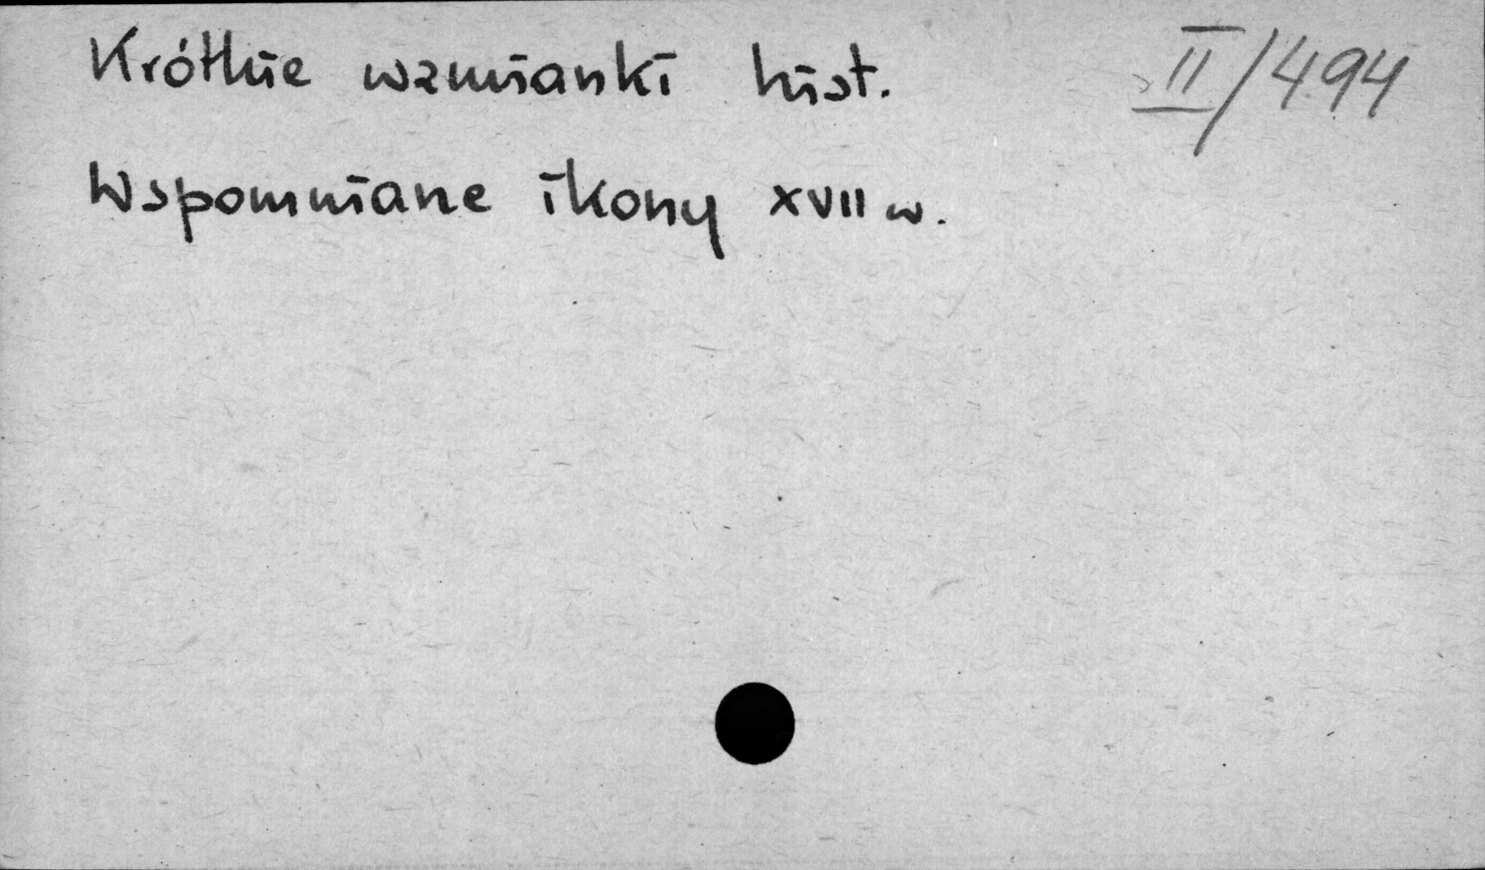 Krótkie wzmianki hist.
II/494
Wspomniane ikony XVII w.